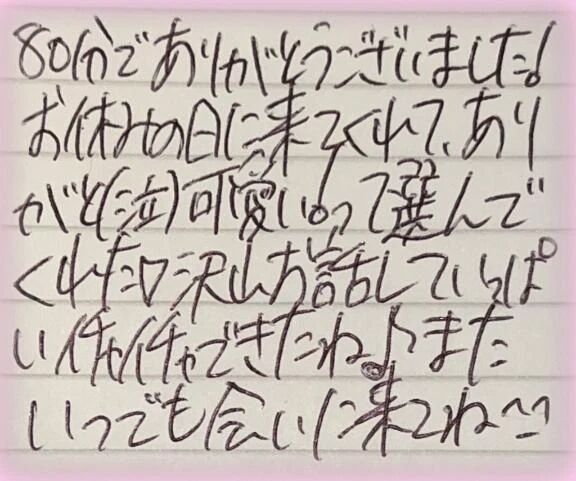 80分でありがとうございました!
お休みの日に来てくれて、あり
がと(泣)可愛い!って選んで
くれた♡沢山お話していっぱ
いイチャイチャできたね♪また
いつでも会いに来てね~!!